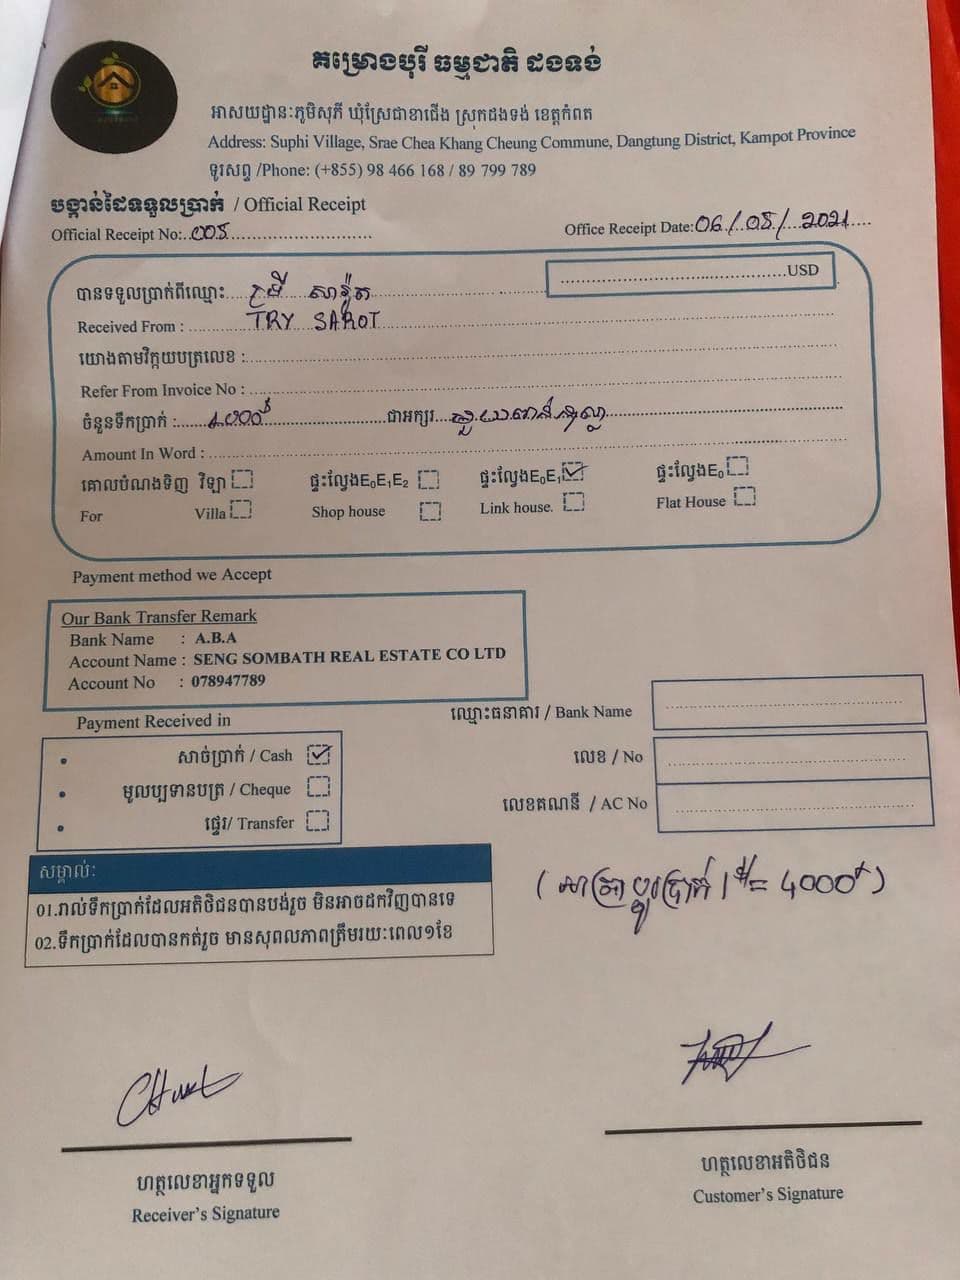 គម្រោងបុរី ធម្មជាតិ ដងទង់
អាសយដ្ឋានៈភូមិសុភី ឃុំស្រែជាខាជើង ស្រុកដងទង់ ខេត្តកំពត
Address: Suphi Village, Srae Chea Khang Cheung Commune, Dangtung District, Kampot Province
ទូរសព្ទ /Phone: (+855) 98 466 168 / 89 799 789
បង្កាន់ដៃទទួលប្រាក់ / Official Receipt
Official Receipt No:
Office Receipt Date: 06/05/2021
USD
បានទទួលប្រាក់ពីឈ្មោះ
Received From : TRY SAROT
យោងតាមវិក្កយបត្រលេខ :
Refer From Invoice No :
ចំនួនទឹកប្រាក់ : ជាអក្សរ
Amount In Word :
គោលបំណងទិញ វិឡា ផ្ទះល្វែងE₀E₁E₂ ផ្ទះល្វែងE₀E₁ ផ្ទះល្វែងE₀
For Villa Shop house Link house. Flat House
Payment method we Accept
Our Bank Transfer Remark
Bank Name : A.B.A
Account Name : SENG SOMBATH REAL ESTATE CO LTD
Account No : 078947789
Payment Received in
ឈ្មោះធនាគារ / Bank Name
• សាច់ប្រាក់ / Cash
លេខ / No
• មូលប្បទានបត្រ / Cheque
លេខគណនី / AC No
• ផ្ទេរ/ Transfer
សម្គាល់ៈ
01.រាល់ទឹកប្រាក់ដែលអតិថិជនបានបង់រួច មិនអាចដកវិញបានទេ
02.ទឹកប្រាក់ដែលបានកត់រួច មានសុពលភាពត្រឹមរយៈពេល១ខែ
(អាត្រាប្ដូរប្រាក់ 1$ = 4000៛)
ហត្ថលេខាអ្នកទទួល
Receiver's Signature
ហត្ថលេខាអតិថិជន
Customer's Signature